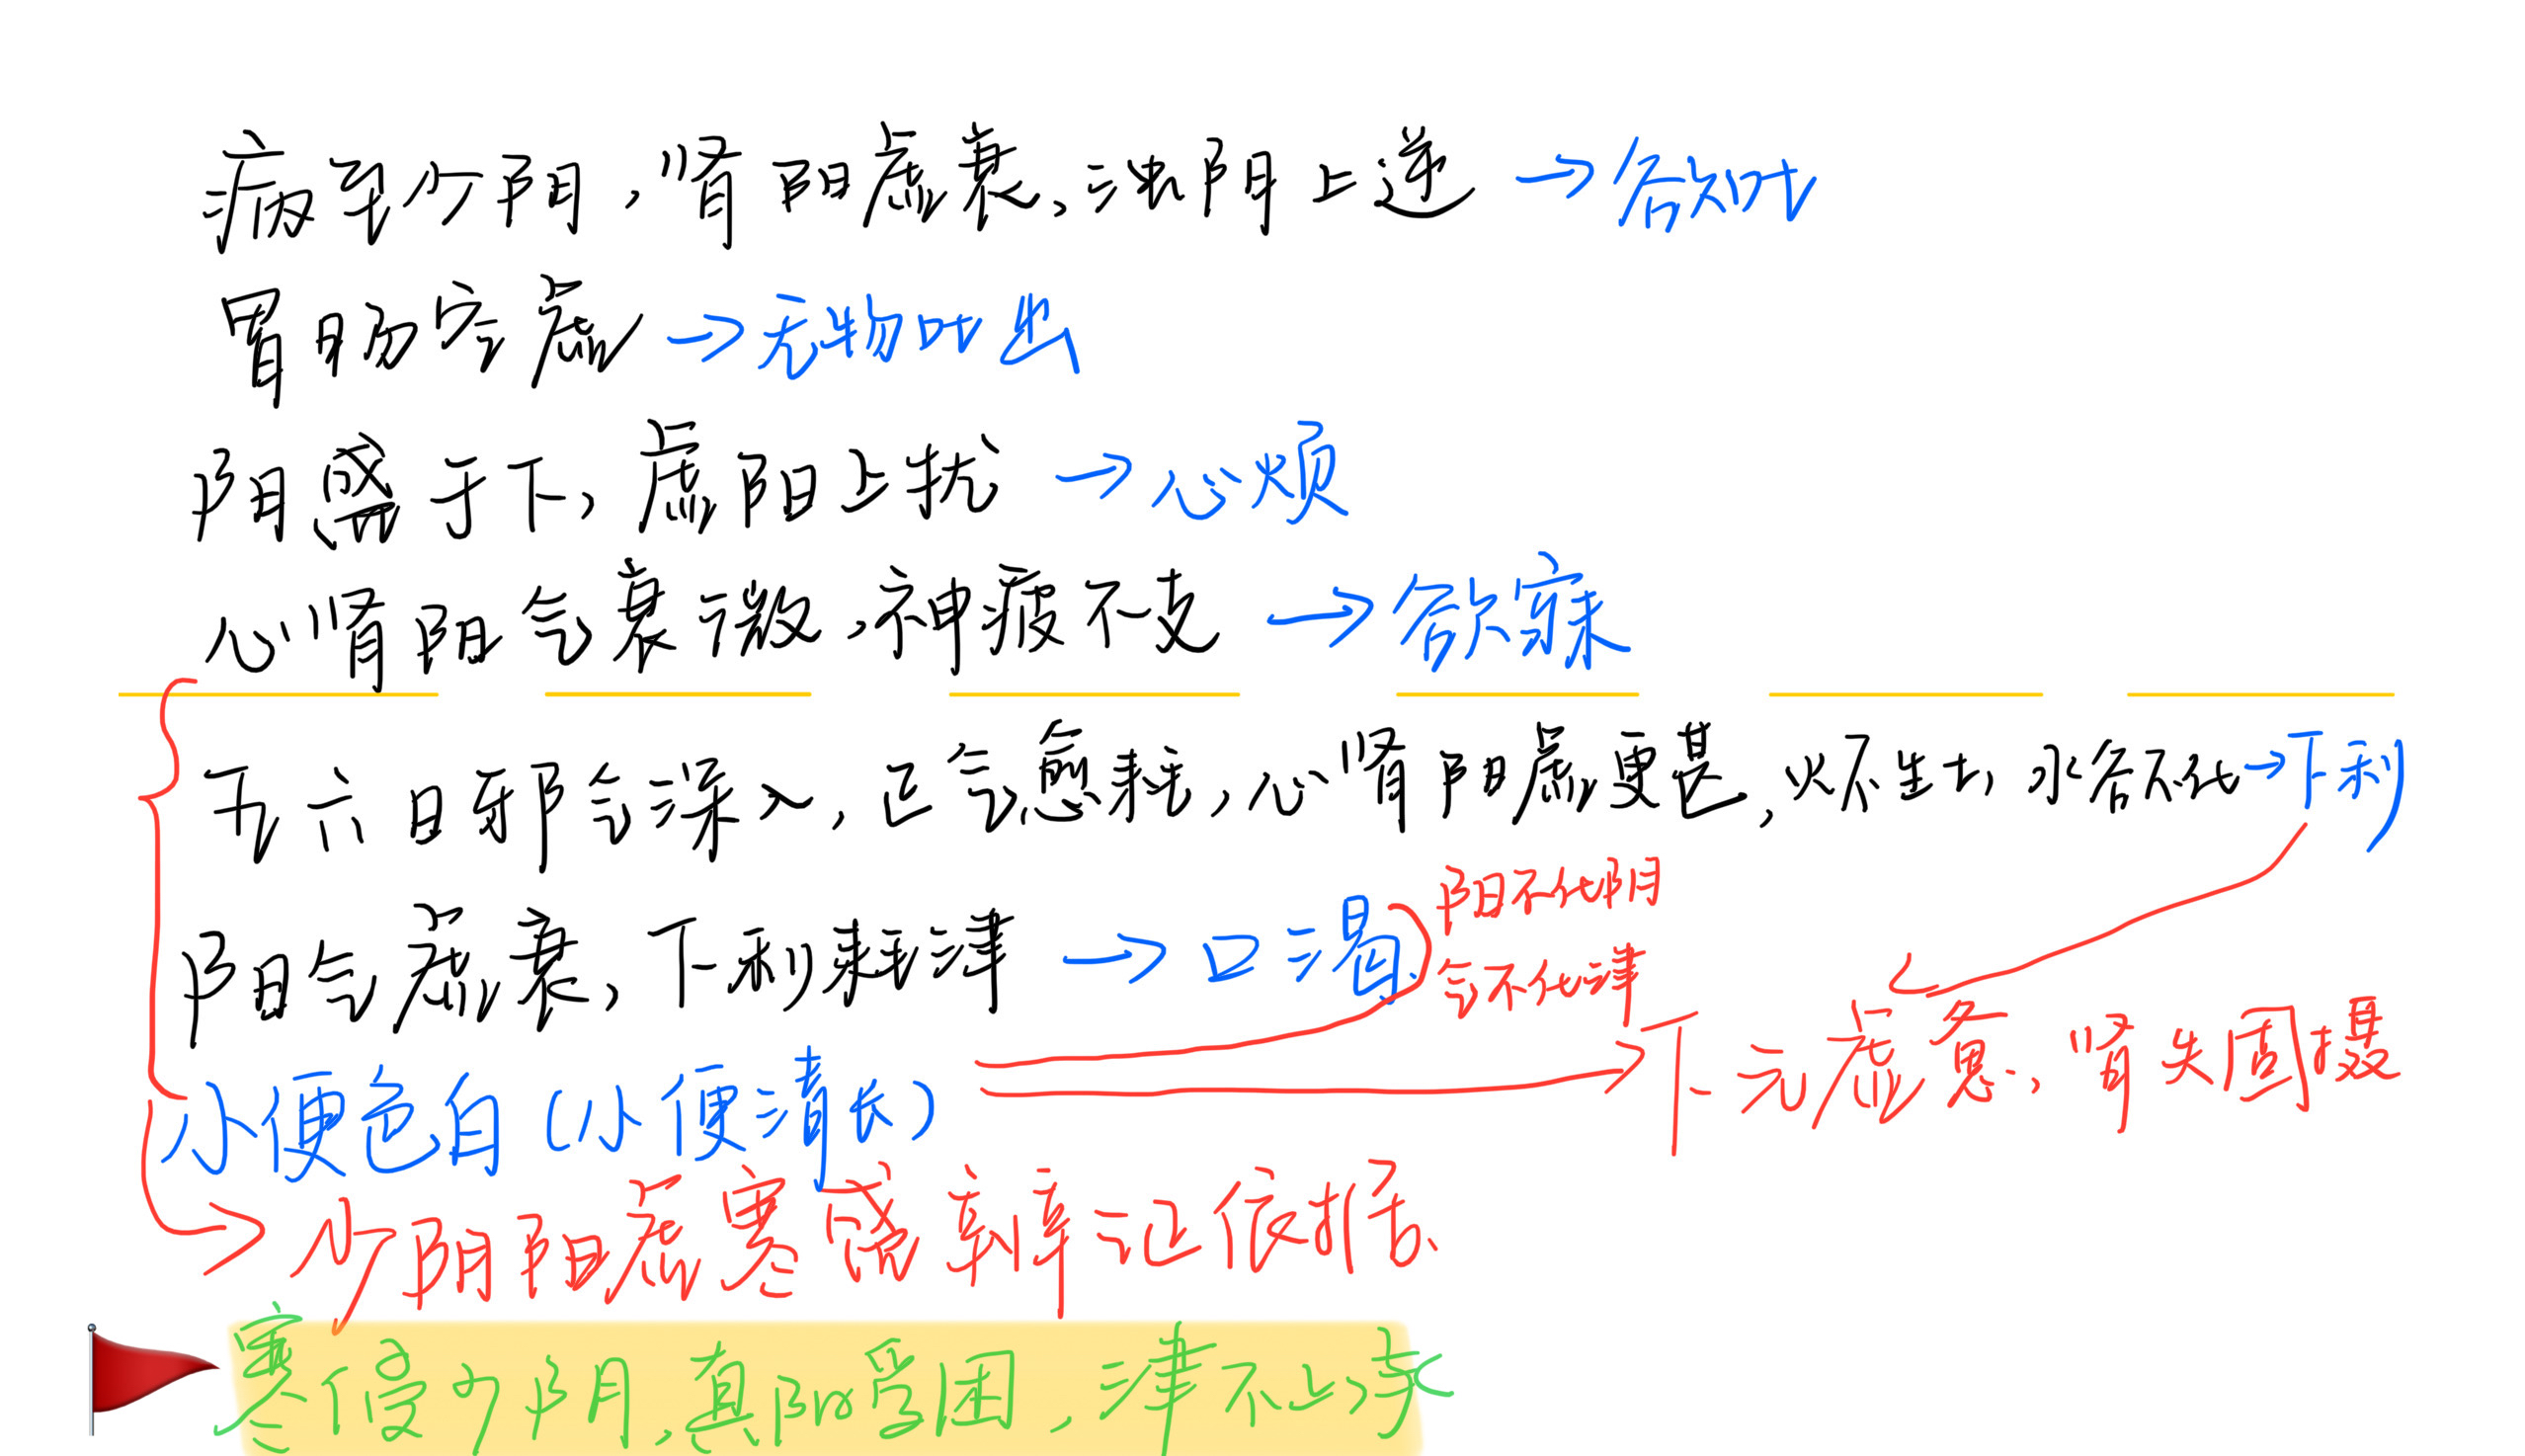 病至少阴，肾阳虚衰，浊阴上逆→欲吐
胃肠空虚→无物吐出
阴盛于下，虚阳上扰→心烦
心肾阳气衰微，神疲不支→欲寐
五六日邪气深入，正气愈耗，心肾阳虚更甚，火不生土，水谷不化→下利
阳气虚衰，下利耗津→口渴
阳不化阴
气不化津
下元虚惫，肾失固摄
小便色白（小便清长）
→少阴阳虚寒盛辨证依据、
寒侵少阴，真阳受困，津不上承